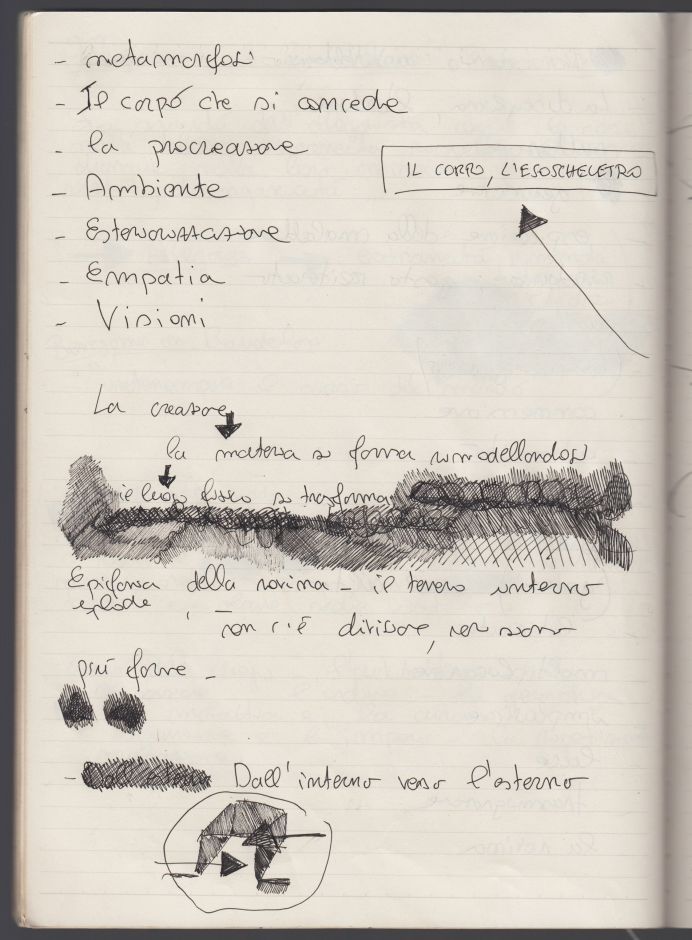 - metamorfosi
- Il corpo che si concede
- la procreazione
IL CORPO, L'ESOSCHELETRO
- Ambiente
- Esteriorizzazione
- Empatia
- Visioni
La creazione
la materia si forma rimodellandosi
il luogo fisico si trasforma
Epifania della rovina - il terreno interno
esplode
non c'è divisione, non sono
più forme -
- Dall'interno verso l'esterno